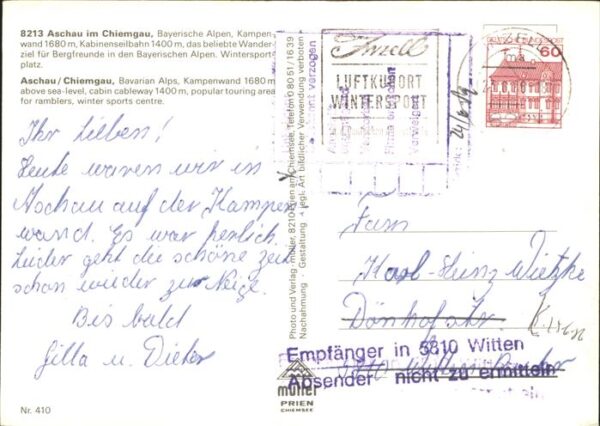 8213 Aschau im Chiemgau, Bayerische Alpen, Kampen-
wand 1680 m, Kabinenseilbahn 1400 m, das beliebte Wander-
ziel für Bergfreunde in den Bayerischen Alpen. Wintersport-
platz.
Aschau / Chiemgau, Bavarian Alps, Kampenwand 1680 m
above sea-level, cabin cableway 1400 m, popular touring area
for ramblers, winter sports centre.
Ihr Lieben!
Heute waren wir in
Aschau auf der Kampen
wand. Es war herrlich.
Leider geht die schöne Zeit
schon wieder zur Neige.
Bis bald
Gilla u. Dieter
Nr. 410
Photo und Verlag: müller, 8210 Prien am Chiemsee, Telefon 08051/1639
Nachahmung · Gestaltung + jegl. Art bildlicher Verwendung verboten
müller
PRIEN
CHIEMSEE
Inzell
LUFTKURORT
WINTERSPORT
verzogen
60
Fam
Karl-Heinz Wietzke
Dönhofstr.
Empfänger in 5810 Witten
Absender nicht zu ermitteln